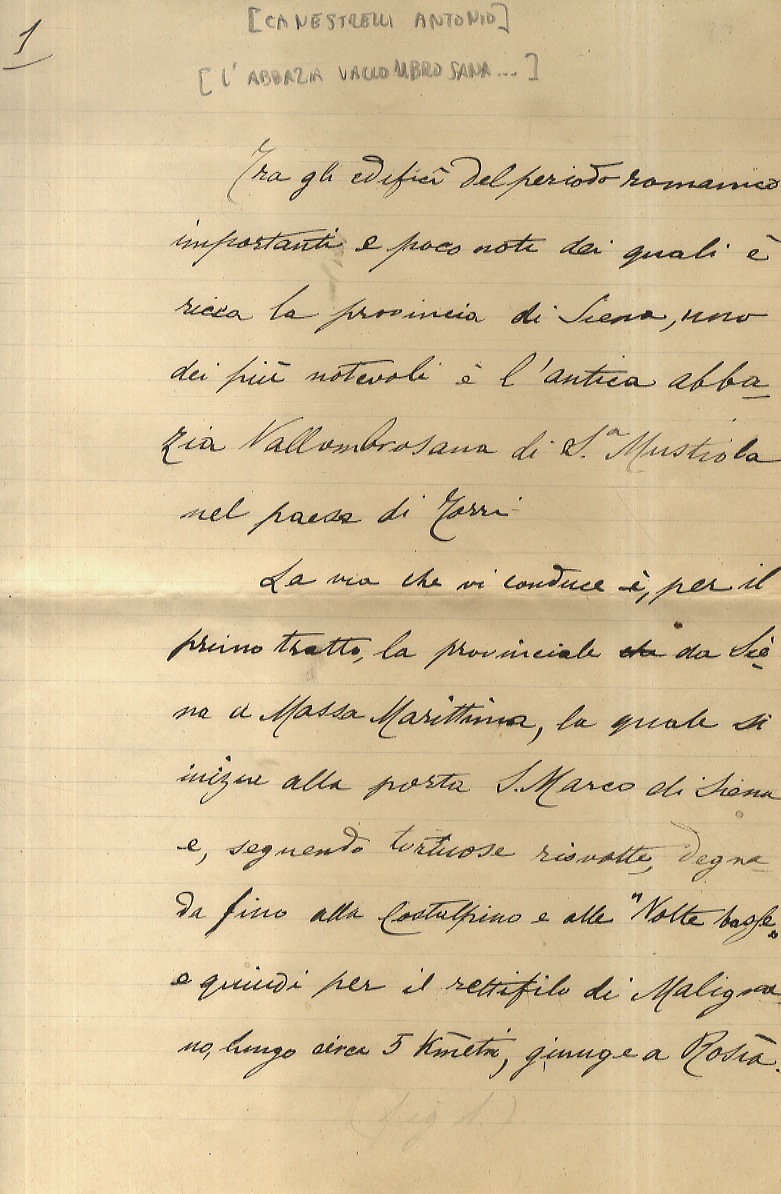 [CANESTRELLI ANTONIO]
1
[L'ABBAZIA VALLOMBROSANA...]
Tra gli edifici del periodo romanico
importanti e poco noti dei quali è
ricca la provincia di Siena, uno
dei più notevoli è l'antica abba-
zia Vallombrosana di S.a Mustiola
nel paese di Torri
La via che vi conduce è, per il
primo tratto, la provinciale da Sie-
na a Massa Marittima, la quale si
inizia alla porta S. Marco di Siena
e, seguendo tortuose risvolte, degra-
da fino alla Costalpino e alle "Volte basse"
e quindi per il rettifilo di Maligna-
no, lungo circa 5 Kmetri, giunge a Rosia.
(fig 1.)